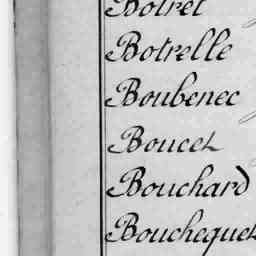 Botrel
Botrelle
Boubenec
Boucet
Bouchard
Bouchequet